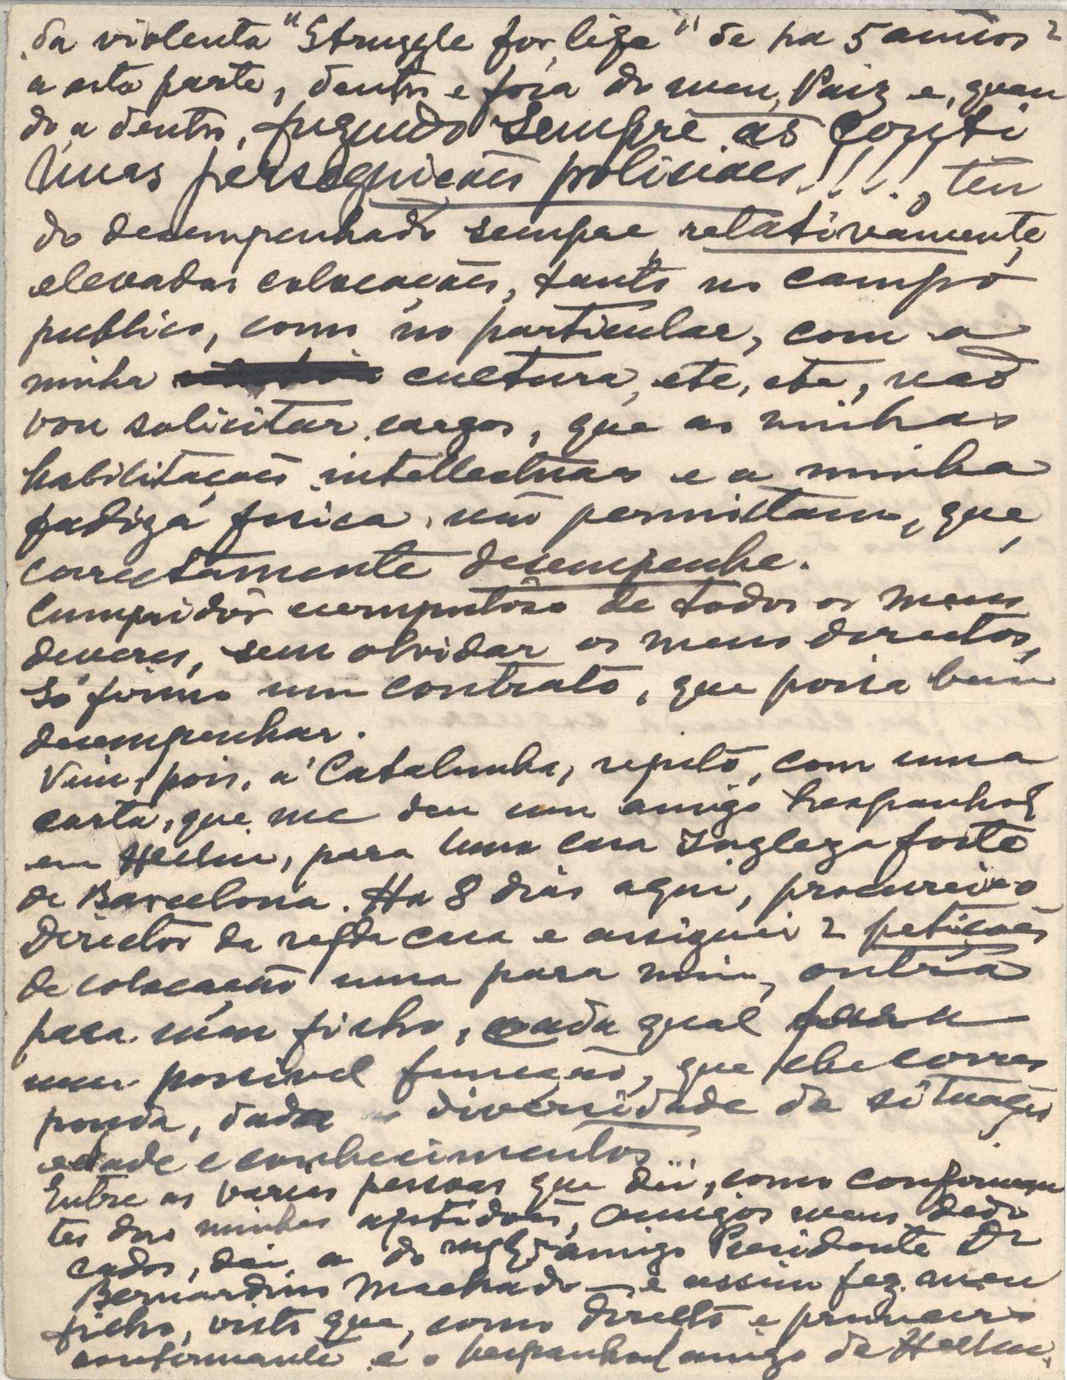 da violenta "Struggle for life" de ha 5 annos 2
a esta parte, dentro e fóra do meu Paiz e, quan
do a dentro, fugindo sempre as conti
nuas perseguicões policiaes!!!!, ten
do desempenhado sempre relativamente,
elevadas colocações, tanto no campo
publico, como no particular, com a
minha cultura, etc, etc, não
vou solicitar cargos, que as minhas
habilitações intellectuaes e a minha
fadiga fisica não permittam, que,
correctamente desempenhe.
Cumpridôr escrupulôso de todos os meus
deveres, sem olvidar os meus direitos,
só firmo um contrato, que possa bem
desempenhar.
Vim, pois, a Catalunha, repito, com uma
carta, que me deu um amigo hespanhol
em, para uma casa Ingleza forte
de Barcelona. Ha 8 dias aqui, procurei o
Director da refda casa e assignei 2 petições
de colocação uma para mim, outra
para meu filho, cada qual para
uma possivel funcção, que lhe corres
ponda, dada a diversidade da situação
edade e conhecimentos...
Entre as varias pessoas que dei, como conforman
tes das minhas aptidões, amigos meus dedi
cados, dei a do amigo Presidente Dr
Bernardino Machado – e assim fez meu
filho, visto que, como directo e primeiro
conformante é o hespanhol amigo de